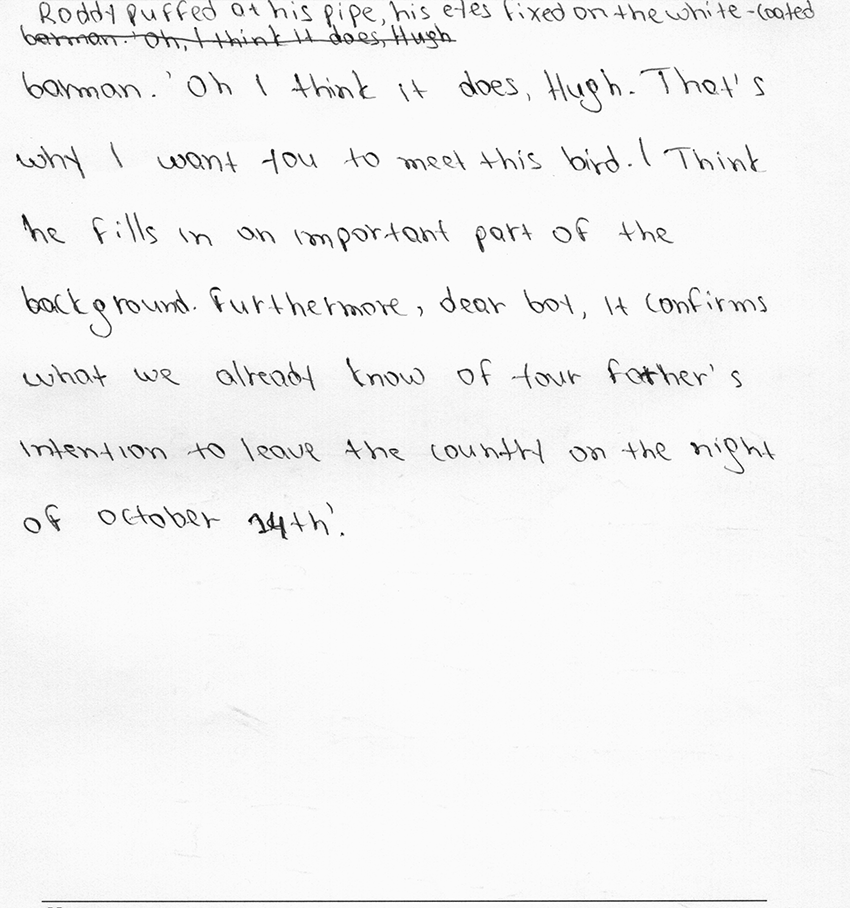 Roddy puffed at his pipe, his eyes fixed on the white-coated
barman. 'Oh, I think it does, Hugh
barman. 'Oh I think it does, Hugh. That's
why I want you to meet this bird. I Think
he fills in an important part of the
background. Furthermore, dear boy, it confirms
what we already know of your father's
intention to leave the country on the night
of october 14th'.